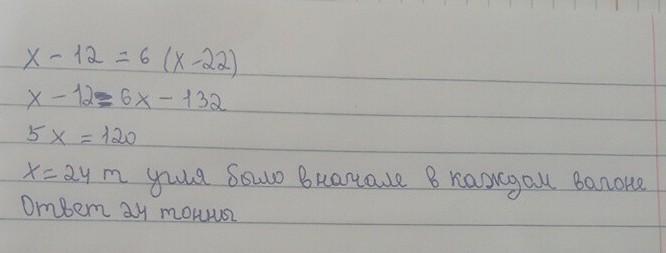 x - 12 = 6 (x - 22)
x - 12 = 6x - 132
5x = 120
x = 24 т угля было вначале в каждом вагоне
Ответ 24 тонны